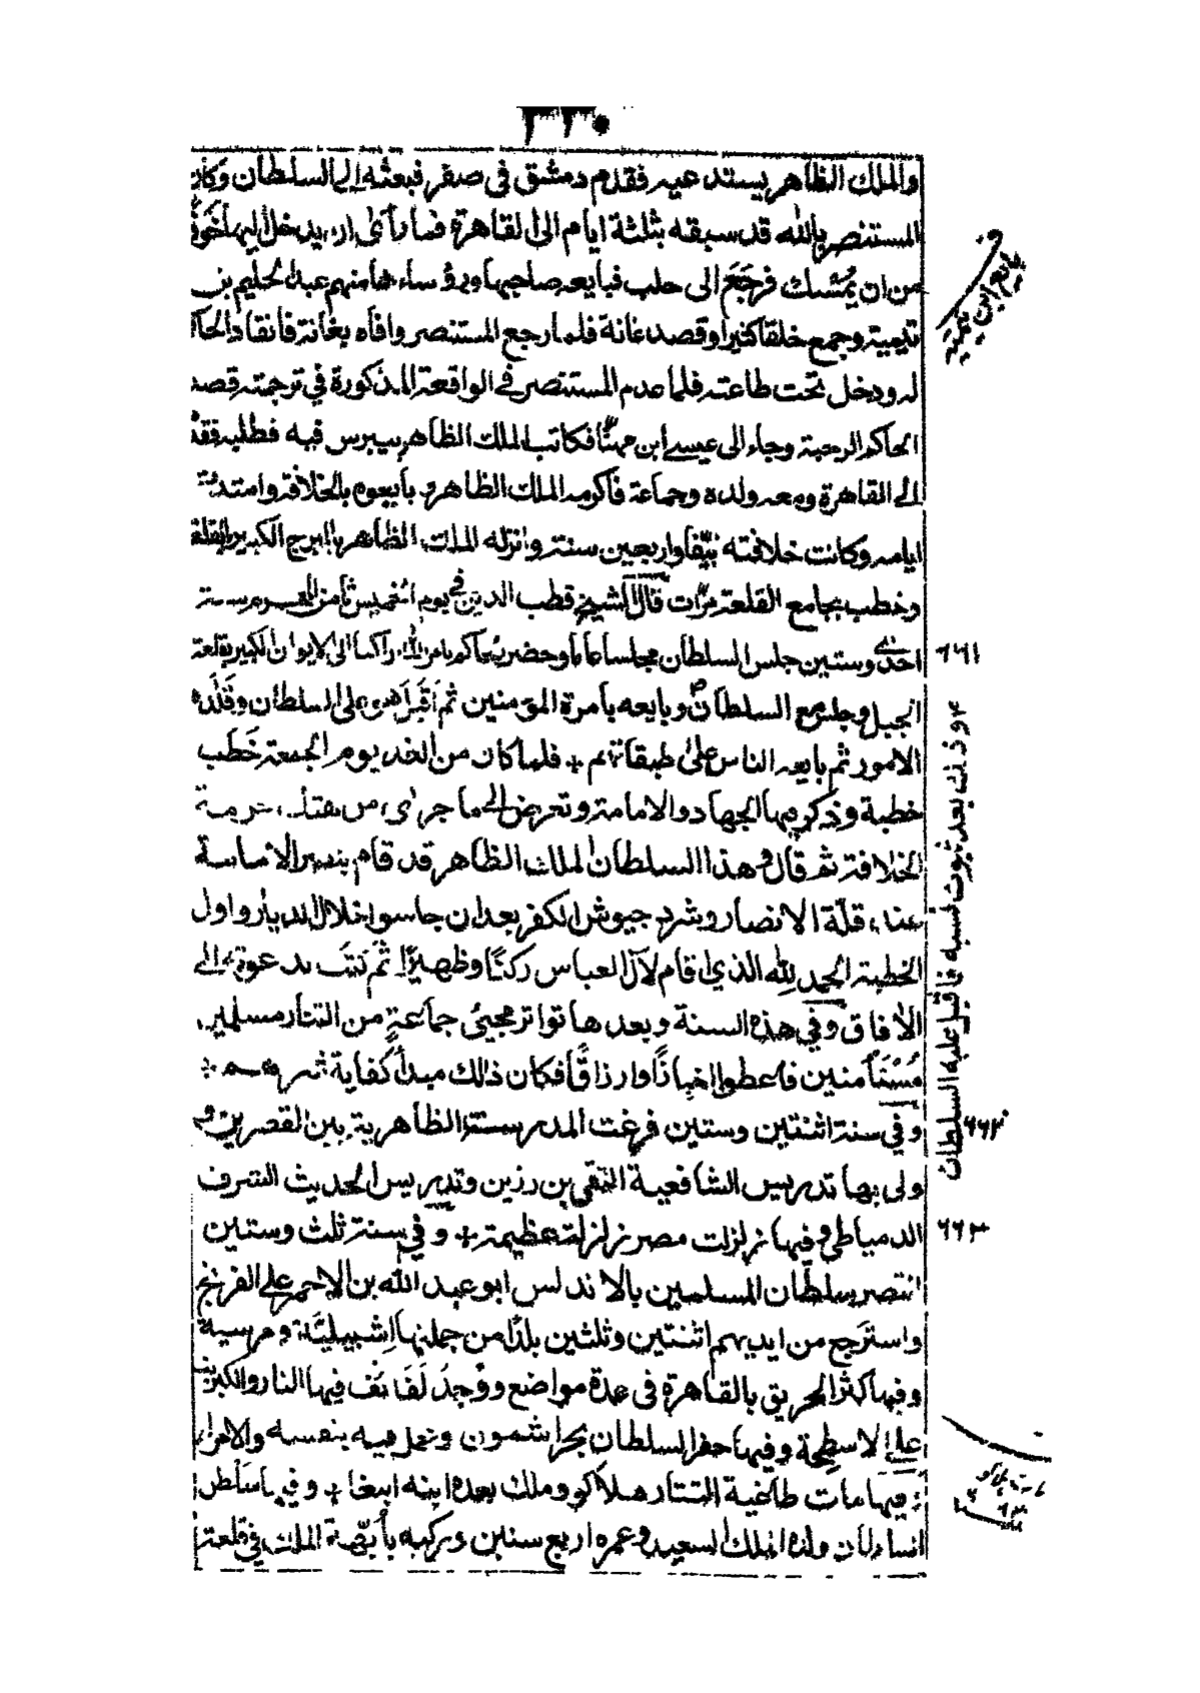 والملك الظاهر يستدعيه فقدم دمشق في صفر فبعثه إلى السلطان وكان
المستنصر بالله قد سبقه بثلثة ايام الى القاهرة فما رأى ان يدخل اليها خوفا
من ان يُمْسك فرجَعَ الى حلب فبايعه صاحبها ورؤساءها منهم عبد الحليم بن
تيمية وجمع خلقا كثيرا وقصد عانة فلما رجع المستنصر وافاه بعانة فانقاد الحاكم
له ودخل تحت طاعته فلما عدم المستنصر في الواقعة المذكورة في ترجمته قصد
الحاكم الرحبة وجاء الى عيسى ابن مهنّا فكاتب الملك الظاهر بيبرس فيه فطلبه فقدم
الى القاهرة ومعه ولده وجماعة فاكرمه الملك الظاهر وبايعوه بالخلافة وامتدت
ايامه وكانت خلافته نيّفا واربعين سنة وانزله الملك الظاهر بالبرج الكبير بالقلعة
وخطب بجامع القلعة مرّات قال الشيخ قطب الدين في يوم الخميس ثامن المحرم سنة
احدى وستين جلس السلطان مجلسا عاما وحضر الحاكم بامر الله راكبا الى الايوان الكبير بقلعة
الجبل وجلس مع السلطان وبايعه بأمرة المؤمنين ثم اقبل هو على السلطان وقلّده
الامور ثم بايعه الناس على طبقاتهم + فلما كان من الغد يوم الجمعة خَطب
خطبة وذكر فيها الجهاد والامامة وتعرض الى ما جرى من هتك حرمة
الخلافة ثم قال وهذا السلطان الملك الظاهر قد قام بنصر الامامة
عند قلّة الانصار وشرد جيوش الكفر بعد ان جاسوا خلال الديار واول
الخطبة الحمد لله الذي اقام لآل العباس ركنًا وظهيرًا ثم كتب بدعوته الى
الأفاق وفي هذه السنة وبعدها تواتر مجيئ جماعةٍ من التتار مسلمين
مُسْتَأمنين فاعطوا اخبازًا وارزاقًا فكان ذالك مبدأ كفاية شرهم +
وفي سنة اثنتين وستين فرغت المدرسة الظاهرية بين القصرين و
ولى بها تدريس الشافعية التقي بن رزين وتدريس الحديث الشرف
الدمياطي وفيها زلزلت مصر زلزلة عظيمة + وفي سنة ثلث وستين
انتصر سلطان المسلمين بالاندلس ابو عبد الله بن الاحمر على الفرنج
واسترجع من ايديهم اثنتين وثلثين بلدًا من جملتها اشبيليّة ومرسية
وفيها كثر الحريق بالقاهرة في عدة مواضع ووُجدَ لَفَائف فيها النار والكبريت
على الاسطحة وفيها حفر السلطان بحر اشمون وعمل فيه بنفسه والامراء
وفيها مات طاغية التتار هلاكو وملك بعده ابنه ابغا + وفيها سلطن
السلطان ولده الملك السعيد وعمره اربع سنين وركبه بأبّهة الملك في قلعة
بايع ابن تيمية
٦٦١
وذلك بعد ثبوت نسبه فاقبل عليه السلطان
٦٦٢
٦٦٣